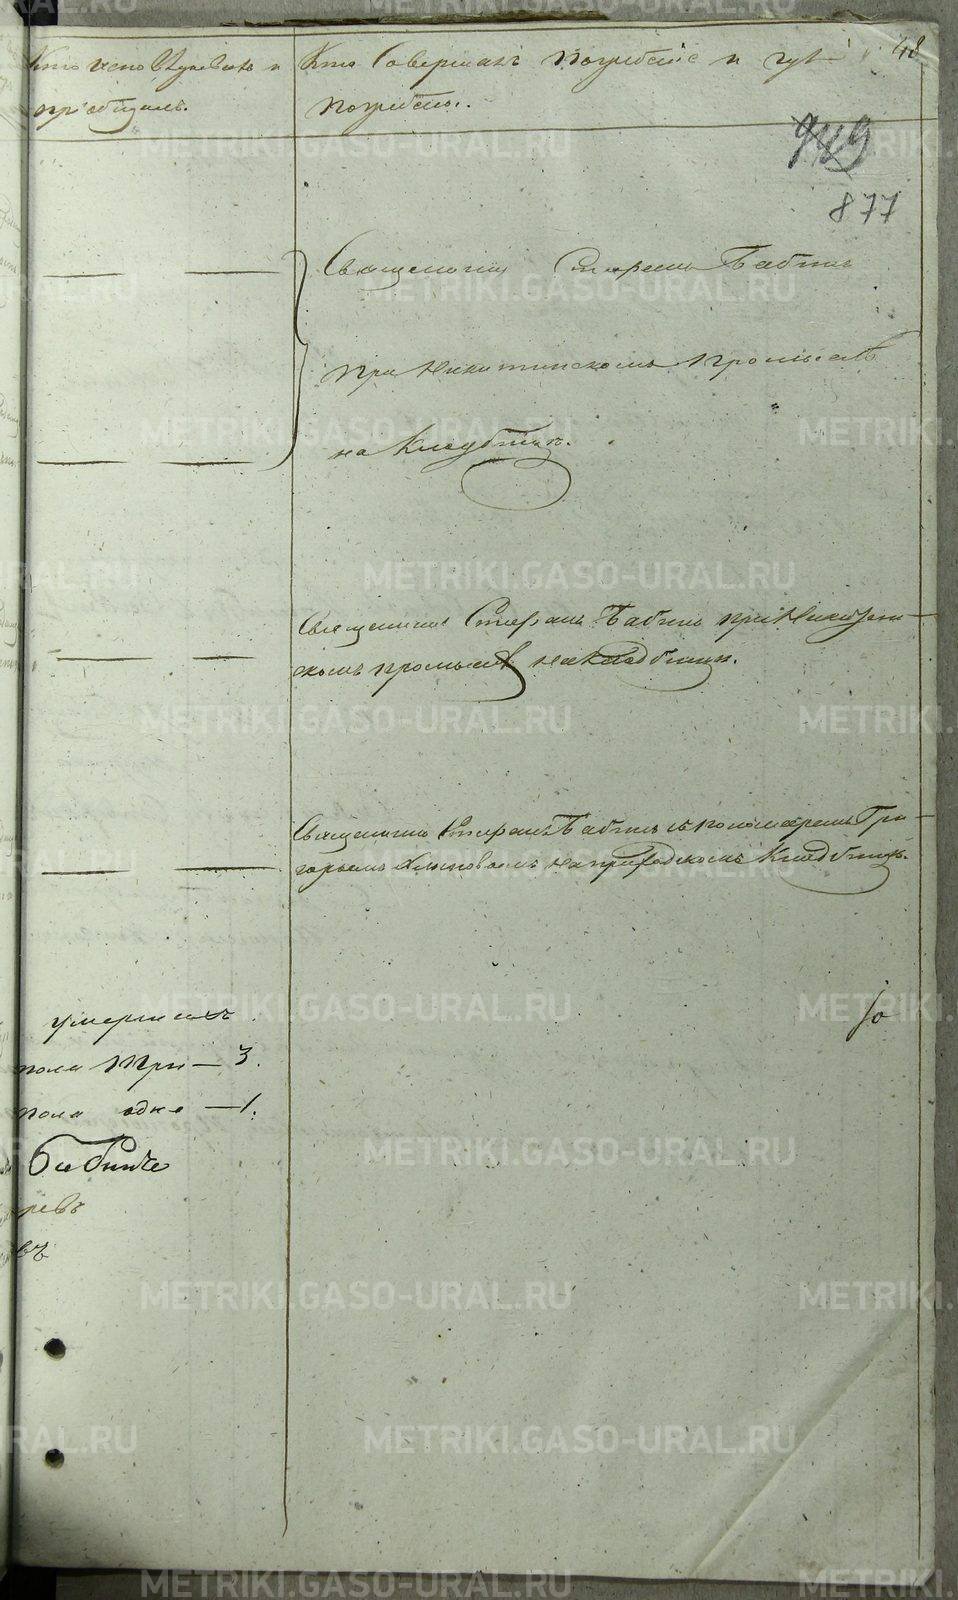 48
Кто исповедывалъ и Кто совершалъ погребенiе и гдѣ
прiобщалъ. погребены.
949
877
Священникъ Стефанъ Бабинъ
при Никитинскомъ промыслѣ
на кладбищѣ.
Священникъ Стефанъ Бабинъ при Никитин-
скомъ промыслѣ на кладбищѣ.
Священникъ Стефанъ Бабинъ съ пономаремъ Гри-
горьемъ на приходскомъ кладбищѣ.
умершихъ
пола три — 3.
пола одно — 1.
Бабинъ
ревъ
въ
METRIKI.GASO-URAL.RU